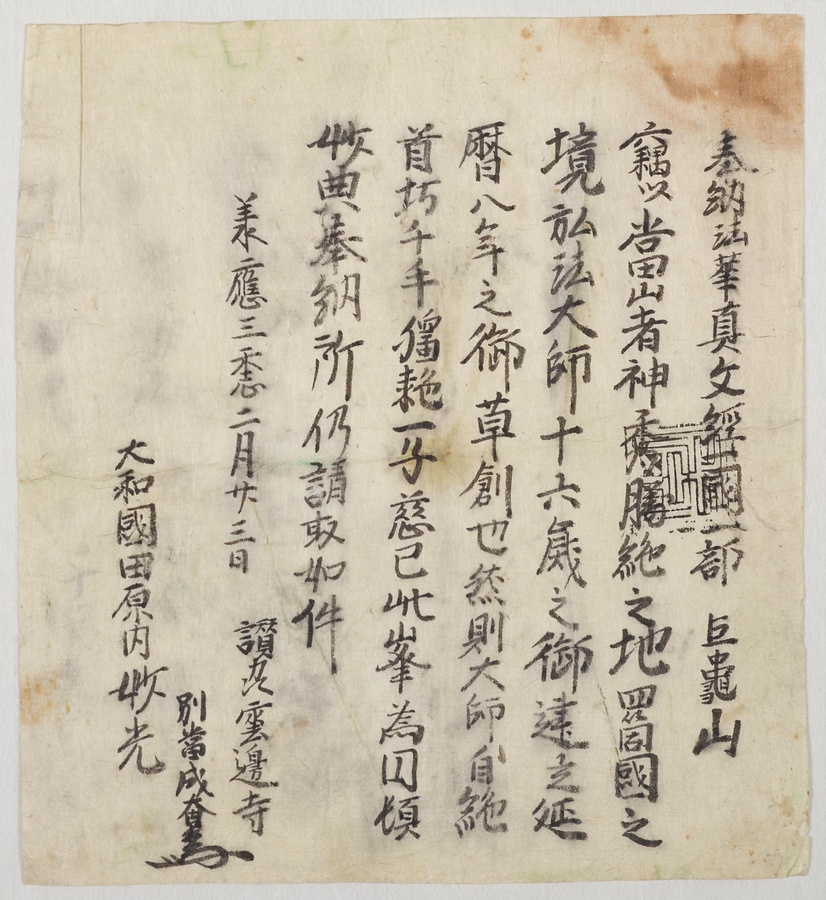 奉納法華真文經國一部 巨鼇山
竊以當山者神秀勝絶之地四箇國之
境弘法大師十六歳之御建立延
暦八年之御草創也然則大師自
首千手一子慈已此峯為
妙典奉納所仍請取如件
承應三二月廿三日
讃岐雲邊寺
別當成
大和國田原内妙光